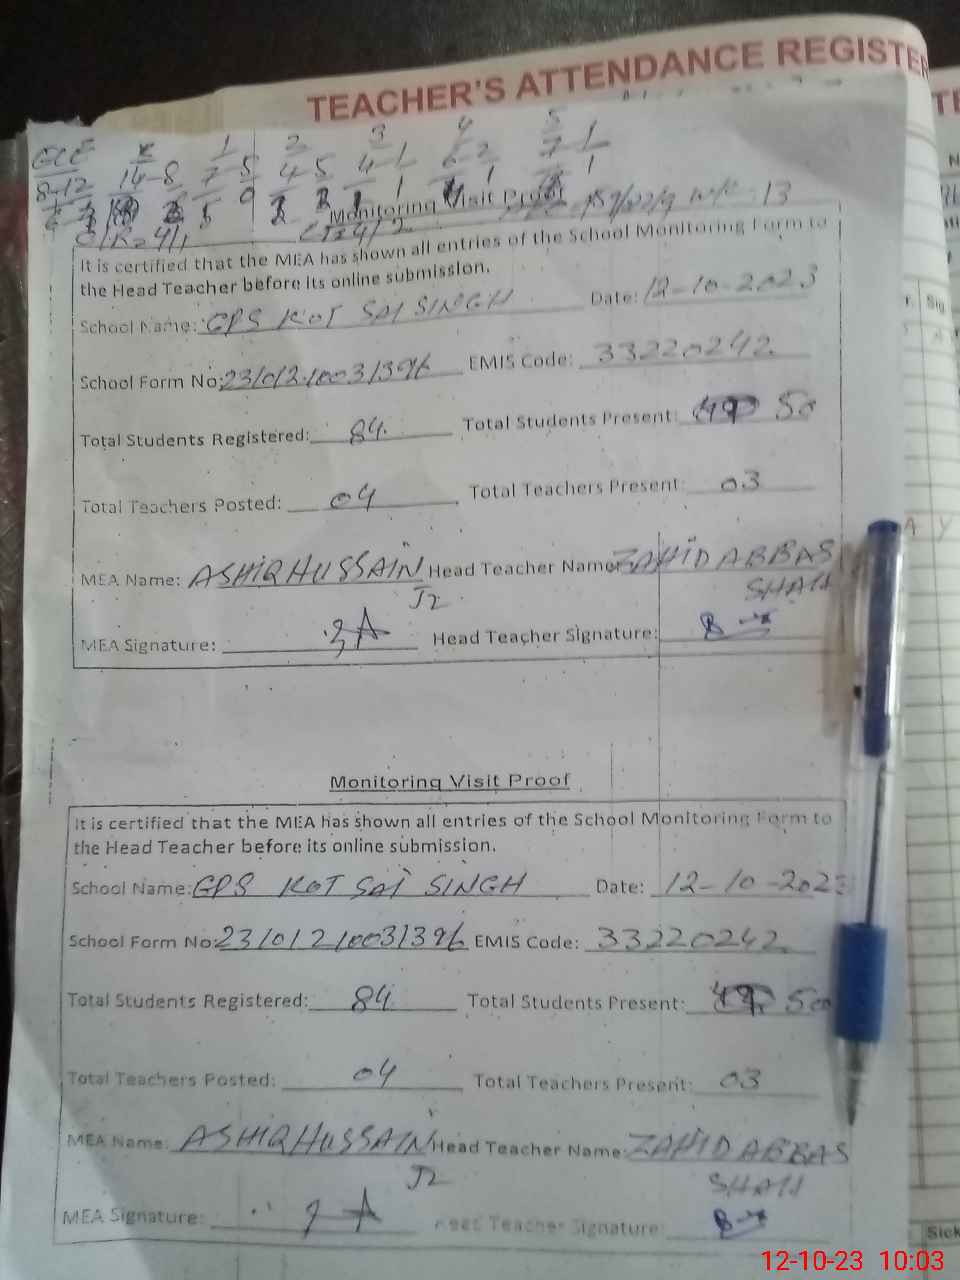 TEACHER'S ATTENDANCE REGISTER
ECE K 1 2 3 4 5
8-12 14-8 7-5 4-5 4-1 6-2 7-1
Monitoring Visit Proof 13
It is certified that the MEA has shown all entries of the School Monitoring Form to
the Head Teacher before its online submission.
School Name: GPS KOT SAI SINGH Date: 12-10-2023
School Form No: 23101210031396 EMIS Code: 33220242
Total Students Registered: 84 Total Students Present: 50
Total Teachers Posted: 04 Total Teachers Present: 03
MEA Name: ASHIQ HUSSAIN Head Teacher Name: ZAHID ABBAS
J2 SHAH
MEA Signature: Head Teacher Signature:
Monitoring Visit Proof
It is certified that the MEA has shown all entries of the School Monitoring Form to
the Head Teacher before its online submission.
School Name: GPS KOT SAI SINGH Date: 12-10-2023
School Form No: 23101210031396 EMIS Code: 33220242
Total Students Registered: 84 Total Students Present: 50
Total Teachers Posted: 04 Total Teachers Present: 03
MEA Name: ASHIQ HUSSAIN Head Teacher Name: ZAHID ABBAS
J2 SHAH
MEA Signature: Head Teacher Signature:
Sick
12-10-23 10:03